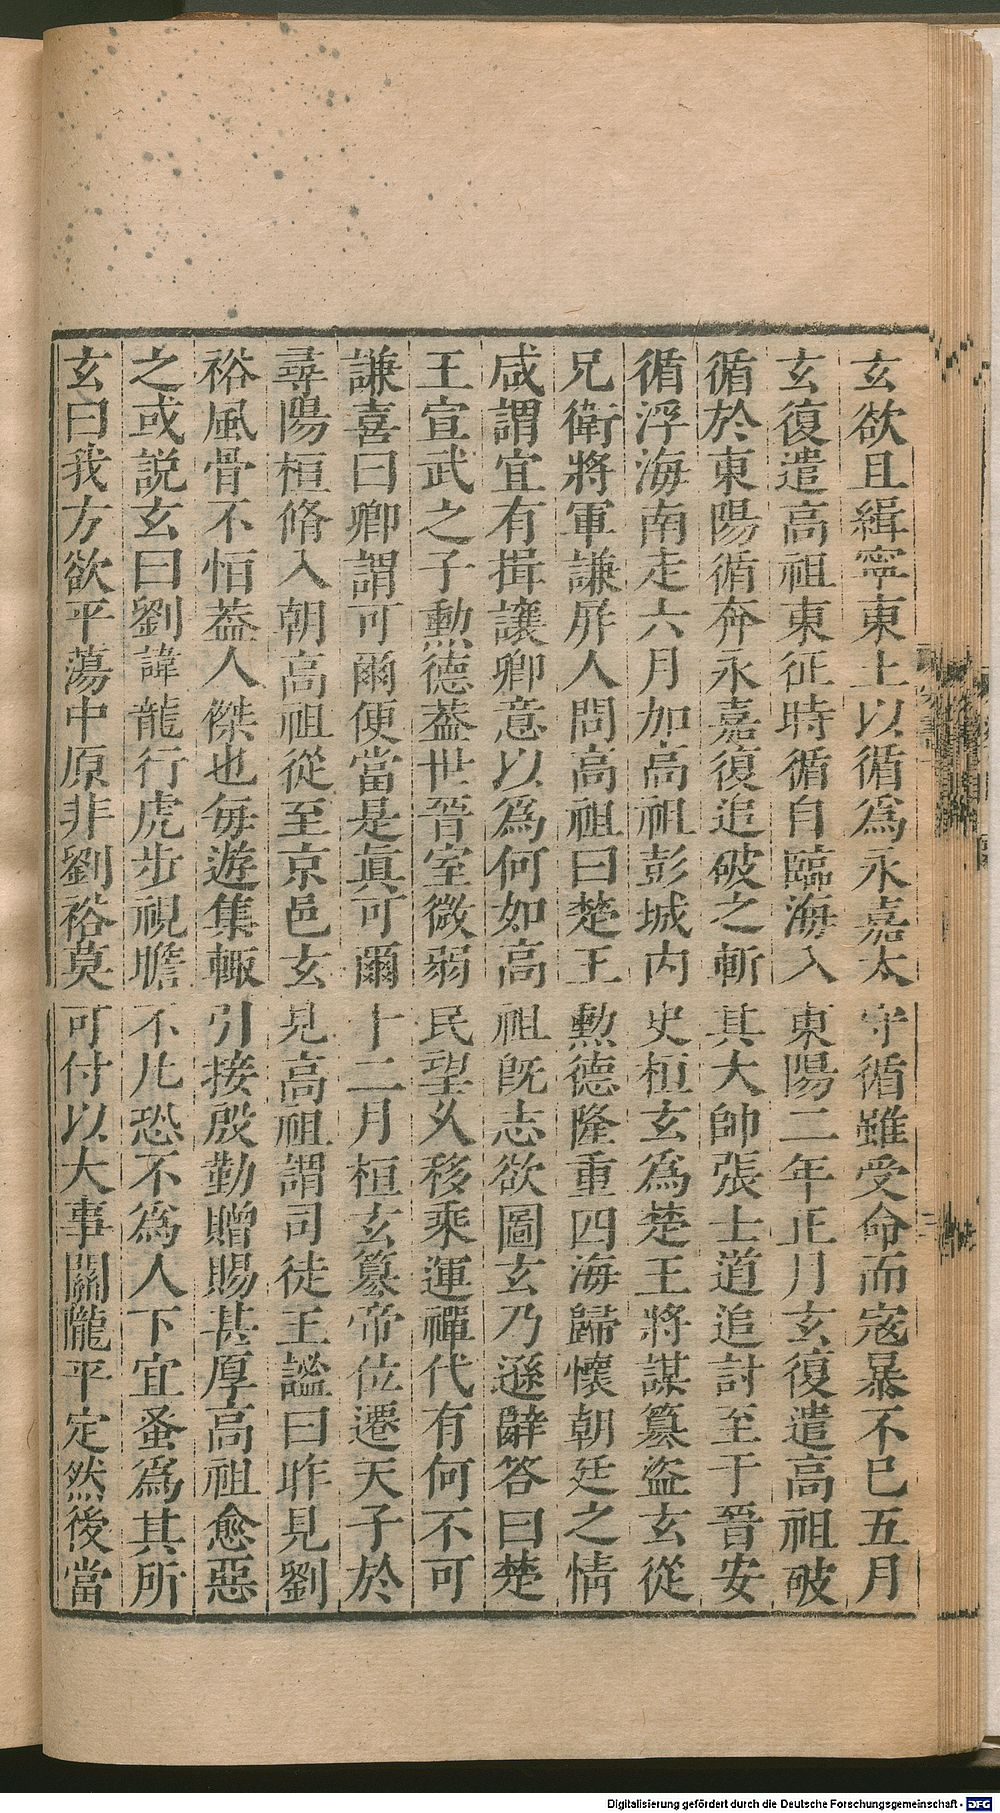 玄欲且緝寧東土以循爲永嘉太守循雖受命而寇暴不已五月
玄復遣高祖東征時循自臨海入東陽二年正月玄復遣高祖破
循於東陽循奔永嘉復追破之斬其大帥張士道追討至于晉安
循浮海南走六月加高祖彭城内史桓玄爲楚王將謀簒盜玄從
兄衛將軍謙屏人問高祖曰楚王勲德隆重四海歸懷朝廷之情
咸謂宜有揖讓卿意以爲何如高祖既志欲圖玄乃遜辭答曰楚
王宣武之子勲德葢世晉室微弱民望久移乘運禪代有何不可
謙喜曰卿謂可爾便當是眞可爾十二月桓玄簒帝位遷天子於
尋陽桓脩入朝高祖從至京邑玄見高祖謂司徒王謐曰昨見劉
裕風骨不恒葢人傑也每遊集輙引接殷勤贈賜甚厚高祖愈惡
之或説玄曰劉諱龍行虎步視瞻不凡恐不爲人下宜蚤爲其所
玄曰我方欲平蕩中原非劉裕莫可付以大事關隴平定然後當
Digitalisierung gefördert durch die Deutsche Forschungsgemeinschaft - DFG